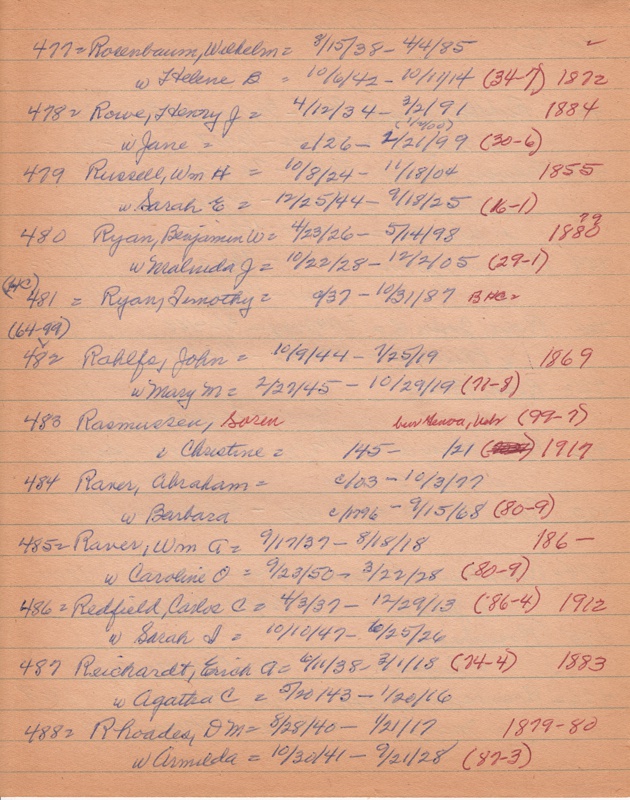 477 = Rosenbaum, Wilhelm = 8/15/38 - 4/4/85
w Helene B = 10/6/42 - 10/11/14 (34-7) 1872
478 = Rowe, Henry J = 4/12/34 - 3/2/91 1884
(1/2/00)
w Jane = c/26 - 2/21/99 (30-6)
479 Russell, Wm H = 10/8/24 - 11/18/04 1855
w Sarah E = 12/25/44 - 9/18/25 (16-1)
79
480 Ryan, Benjamin W = 4/23/26 - 5/14/98 1880
w Malinda J = 10/22/28 - 12/2/05 (29-1)
481 = Ryan, Timothy = c/37 - 10/31/87 BHC=
(64-99)
482 Rahlfs, John = 10/9/44 - 7/25/19 1869
w Mary M = 2/27/45 - 10/29/19 (77-8)
483 Rasmussen, Soren bur Genoa, Nebr (99-7)
w Christine = /45 - /21 1917
484 Raver, Abraham = c/03 - 10/3/77
w Barbara c/1796 - 9/15/68 (80-9)
485 = Raver, Wm A = 9/17/37 - 8/18/18 186-
w Caroline O = 9/23/50 - 3/22/28 (80-9)
486 = Redfield, Carlos C = 4/3/37 - 12/29/13 (86-4) 1912
w Sarah I = 10/10/47 - 6/25/26
487 Reichardt, Erich A = 6/11/38 - 3/1/18 (74-4) 1883
w Agatha C = 5/20/43 - 1/20/16
488 = Rhoades, D M = 8/28/40 - 1/21/17 1879-80
w Armilda = 10/30/41 - 9/21/28 (87-3)